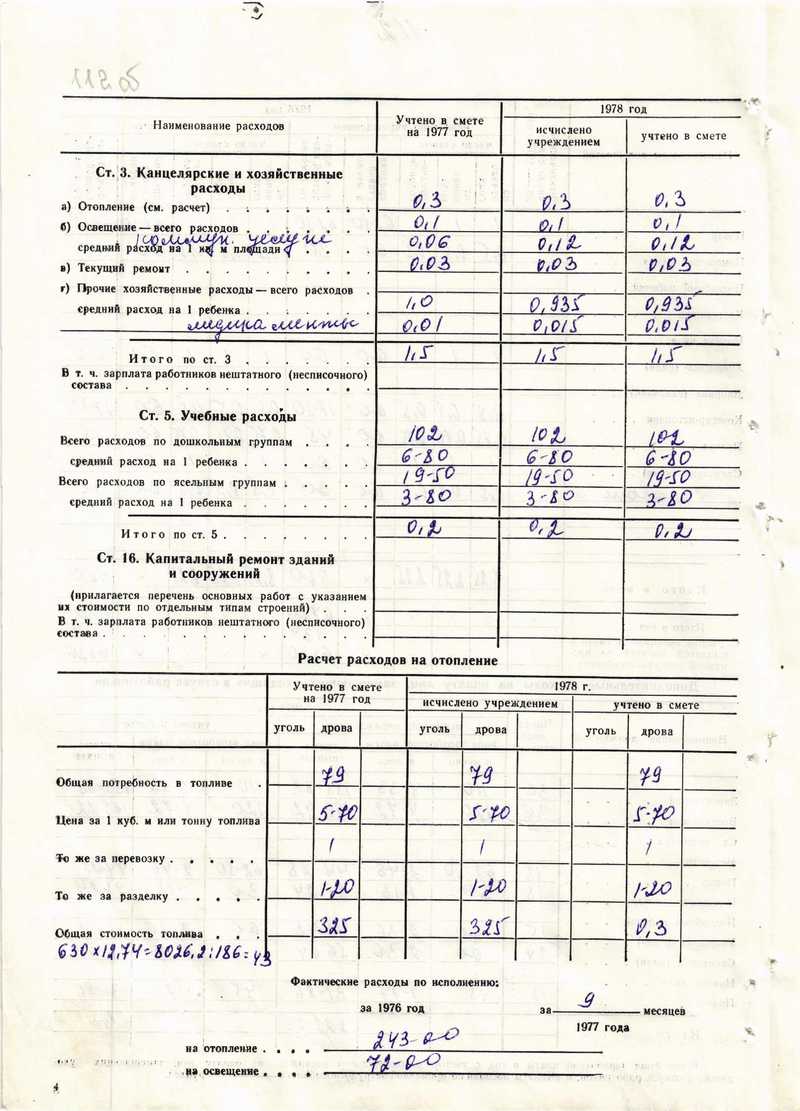 112 об
Наименование расходов
Учтено в смете на 1977 год
1978 год
исчислено учреждением
учтено в смете
Ст. 3. Канцелярские и хозяйственные расходы
а) Отопление (см. расчет) . . . . . . . . 0,3 0,3 0,3
б) Освещение — всего расходов . . . . . . . 0,1 0,1 0,1
коммун. услуги
средний расход на 1 кв. м площади . . . . 0,06 0,12 0,12
в) Текущий ремонт . . . . . . . . . . 0,03 0,03 0,03
г) Прочие хозяйственные расходы — всего расходов .
средний расход на 1 ребенка . . . . . . . 1,0 0,935 0,935
медикаменты 0,01 0,015 0,015
Итого по ст. 3 . . . . . . . 1,5 1,5 1,5
В т. ч. зарплата работников нештатного (несписочного)
состава . . . . . . . . . . . . .
Ст. 5. Учебные расходы
Всего расходов по дошкольным группам . . . . 102 102 102
средний расход на 1 ребенка . . . . . . . 6-80 6-80 6-80
Всего расходов по ясельным группам . . . . . 19-50 19-50 19-50
средний расход на 1 ребенка . . . . . . . 3-80 3-80 3-80
Итого по ст. 5 . . . . . . . . 0,2 0,2 0,2
Ст. 16. Капитальный ремонт зданий
и сооружений
(прилагается перечень основных работ с указанием
их стоимости по отдельным типам строений) . . .
В т. ч. зарплата работников нештатного (несписочного)
состава . . . . . . . . . . . . . .
Расчет расходов на отопление
Учтено в смете на 1977 год
1978 г.
исчислено учреждением
учтено в смете
уголь дрова уголь дрова уголь дрова
Общая потребность в топливе . 79 79 79
Цена за 1 куб. м или тонну топлива 5-70 5-70 5-70
То же за перевозку . . . . . 1 1 1
То же за разделку . . . . . 1-20 1-20 1-20
Общая стоимость топлива . . . 325 325 0,3
630 х 12,74 = 8026,2 : 186 = 43
Фактические расходы по исполнению:
за 1976 год за 9 месяцев
1977 года
на отопление . . . . 243-00
на освещение . . . . 72-00
4